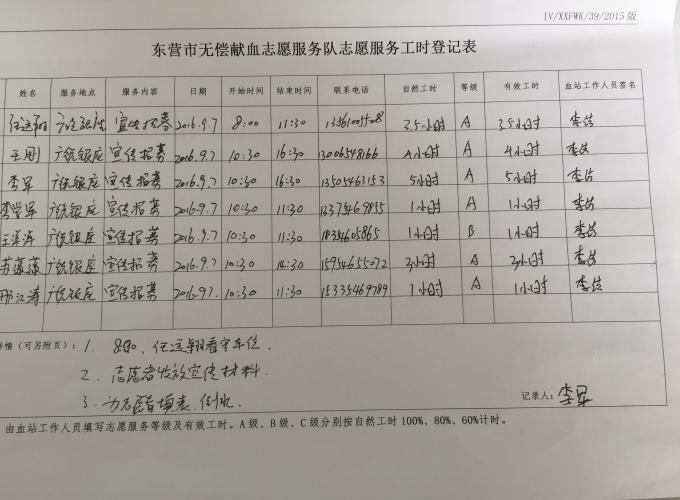 IV/XXFWK/39/2015版
东营市无偿献血志愿服务队志愿服务工时登记表
姓名 服务地点 服务内容 日期 开始时间 结束时间 联系电话 自然工时 等级 有效工时 血站工作人员签名
任远翔 宣传招募 2016.9.7 8:00 11:30 3.5小时 A 3.5小时
王刚 广饶银座 宣传招募 2016.9.7 10:30 16:30 13006548166 4小时 A 4小时
李军 广饶银座 宣传招募 2016.9.7 10:30 16:30 13505463153 5小时 A 5小时
广饶银座 宣传招募 2016.9.7 10:30 11:30 1小时 A 1小时
广饶银座 宣传招募 2016.9.7 10:30 11:30 1小时 B 1小时
广饶银座 宣传招募 2016.9.7 10:30 14:30 15954655072 3小时 A 3小时
邢江涛 广饶银座 宣传招募 2016.9.7. 10:30 11:30 15335469789 1小时 A 1小时
详情（可另附页）：1. 8:00，任远翔看守车位．
2．志愿者发放宣传材料．
3．为 填表．倒水
记录人：李军
由血站工作人员填写志愿服务等级及有效工时。A级、B级、C级分别按自然工时100%、80%、60%计时。